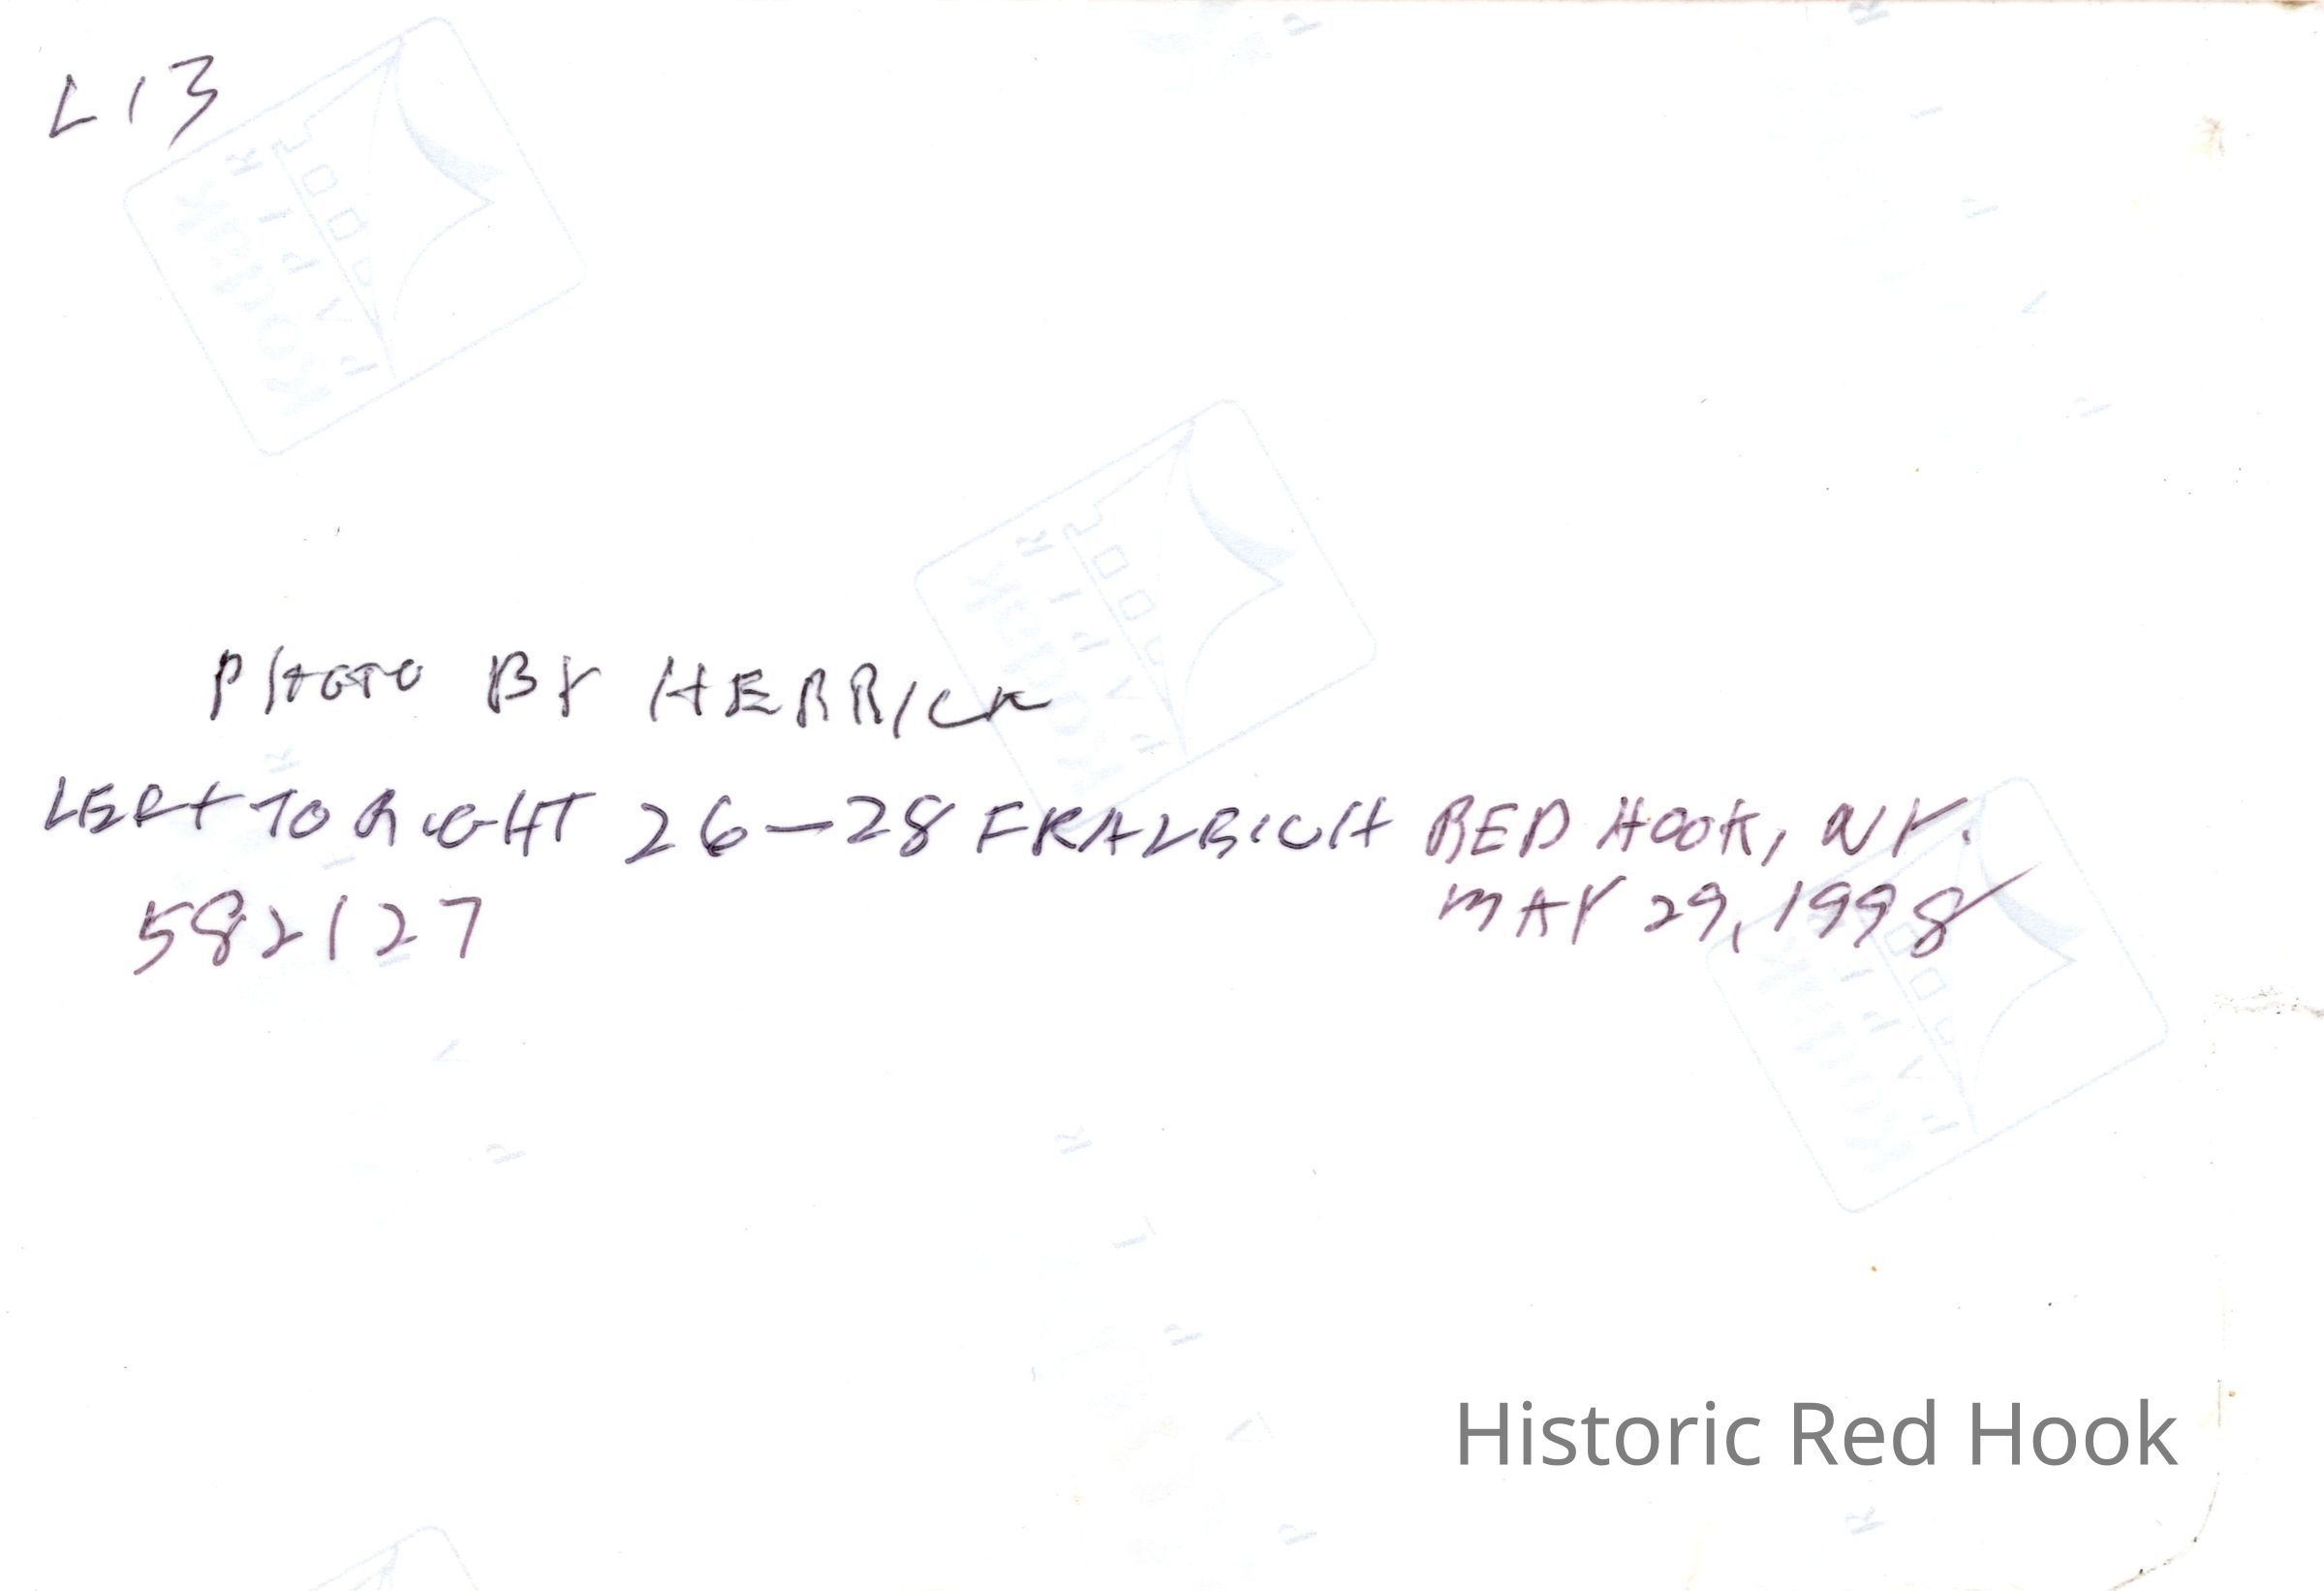 L13
PHOTO BY HERRICK
LEFT TO RIGHT 26-28 FRALEIGH RED HOOK, NY.
582127 MAY 29, 1998
Historic Red Hook